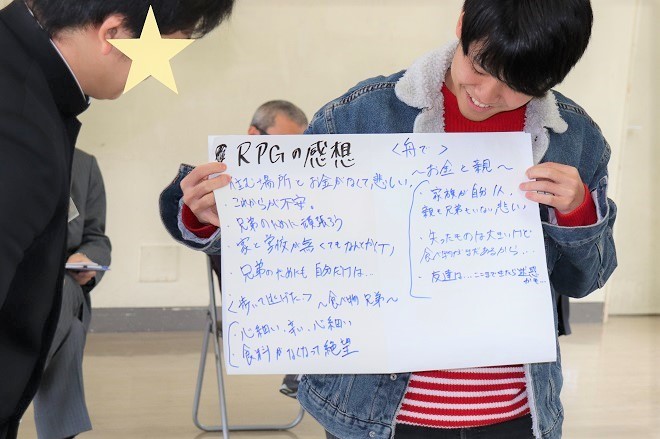 RPGの感想
住む場所とお金がなくて悲しい。
・これからが不安。
・兄弟のために頑張ろう
・家と家族が無くてもなんとか(T)
・兄弟のためにも自分だけは…
<歩いて逃げた> ～食べ物 兄弟～
・心細い、辛い、心細い
・食料がなくなって絶望
<舟で>
～お金と親～
・家族が自分1人
親も兄弟もいない悲しい
・失ったものは大きい
食べ物はまだあるから…
・友達は…ここまできたら迷惑
かも…